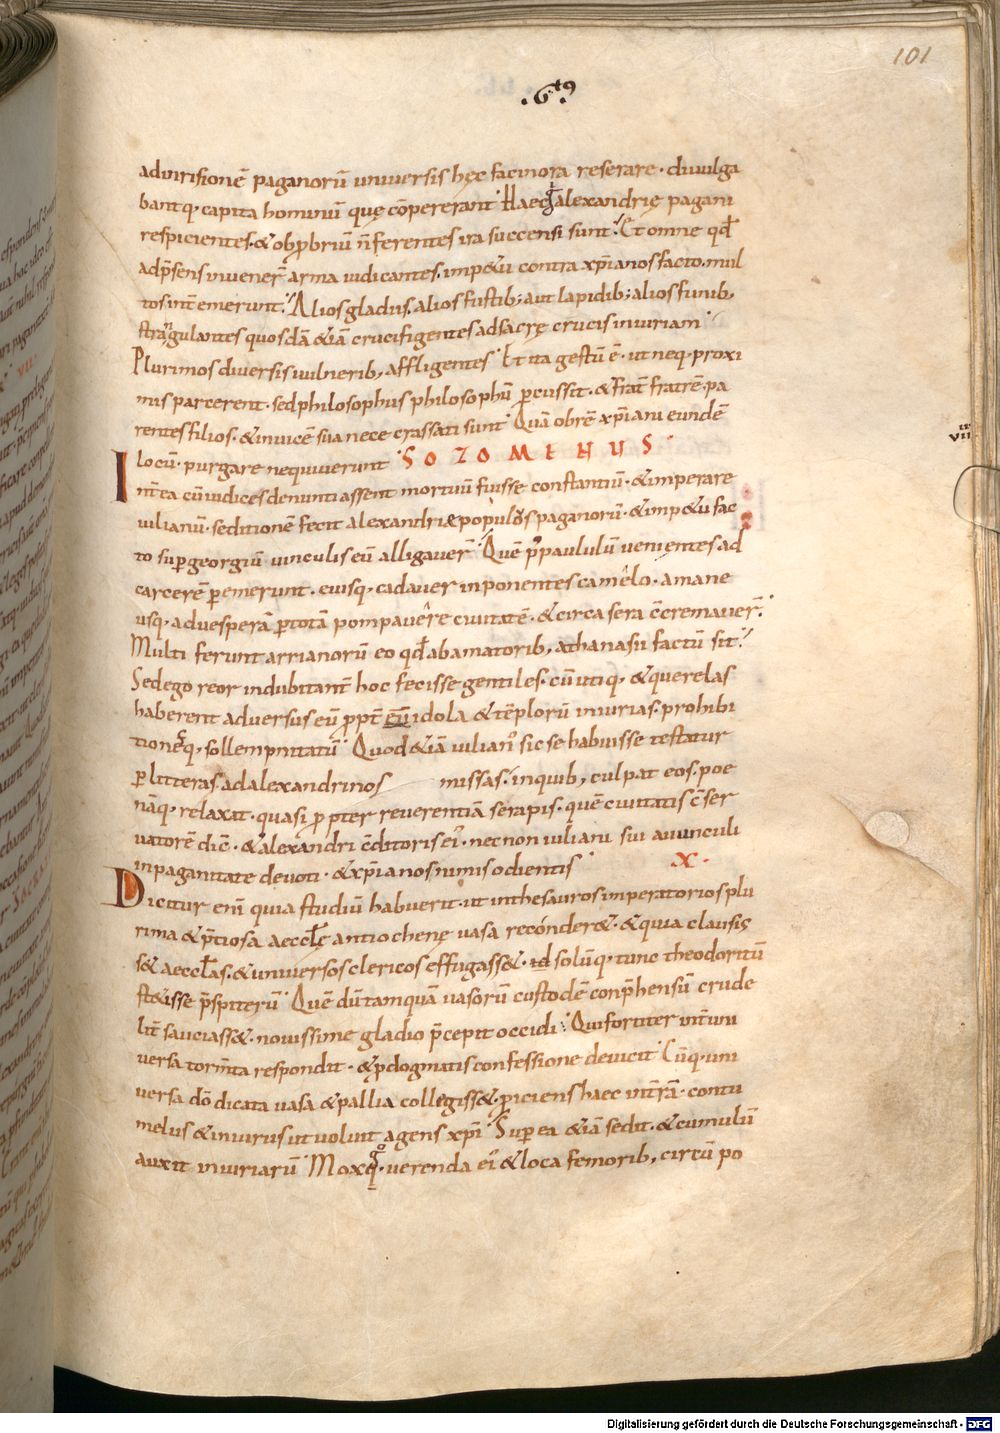 101
.6.t9
aduirisionē paganorū uniuersis hęc facinora reserare. diuulga
bantq; capita hominū quę cōpererant. Haec q alexandrię pagani
respicientes. & obprbriū ñ ferentes ira succensi sunt. Et omne qđ
adp̄sens inuener̄ arma iudicantes. imp&u contra xp̄ianos facto. mul
tos int̄emerunt. Alios gladiis. alios fustib; aut lapidib; alios funib;
strangulantes quosdā &iā crucifigentes ad sacrę crucis iniuriam.
Plurimos diuersis uulnerib; affligentes. Et ita gestū ē. ut neq; proxi
mis parcerent. sed philosophus philosophū percussit. & frat̄ fratrē. pa
rentes filios. & inuicē sua nece crassati sunt. Quā obrē xp̄iani eundē
locū. purgare nequiuerunt. SOZOMENUS.
Int̄ea cū iudices denuntiassent mortuū fuisse constantiū. & imperare
iulianū. seditionē fecit alexandri& populus paganorū. & imp&u fac
to sup georgiū uinculis eū alligauer̄. Quē p̄ paululū uenientes ad
carcerē p̄emerunt. eiusq; cadauer inponentes camelo. a mane
usq; ad uesperā p totā pompauere ciuitatē. & circa sera c̄cremauer̄.
Multi ferunt arrianorū eo qđ ab amatorib; athanasii factū sit.
Sed ego reor indubitant̄ hoc fecisse gentiles. cū utiq; & querelas
haberent aduersus eū p̄pt̄ eū idola & tēplorū iniurias. prohibi
tionēq; sollempnitatū. Quod &iā iulian' sic se habuisse testatur
p litteras. ad alexandrinos missas. in quib; culpat eos. poe
nāq; relaxit. quasi p pter reuerentiā serapis. quē ciuitatis c̄ser
uatorē dic̄. & alexandri c̄ditoris ei'. nec non iuliani sui auunculi
in paganitate deuoti. & xp̄ianos nimis odientis. X.
Dicitur eni quia studiū habuerit. ut in thesauros imperatorios plu
rima & p̄tiosa aecclę antiochenę uasa recóndere&. & quia clausis
s& aecclas. & uniuersos clericos effugass&. id solūq; tunc theodoritū
stetisse p̄spiterū. Quē dū tamquā uasorū custodē conp̄hensū crude
lit̄ sauciass&. nouissime gladio p̄cepit occidi. Qui fortiter int̄ uni
uersa tormta respondit. & p dogmatis confessione deuicit. Cūq; uni
uersa dō dicata uasa & pallia collegiss&. piciens haec int̄rā. contu
melus & iniuriis ut uoluit agens xp̄i. Super ea &iā sedit. & cumulū
auxit iniuriarū. Moxq; uerenda ei' & loca femorib; circū po
Digitalisierung gefördert durch die Deutsche Forschungsgemeinschaft - DFG